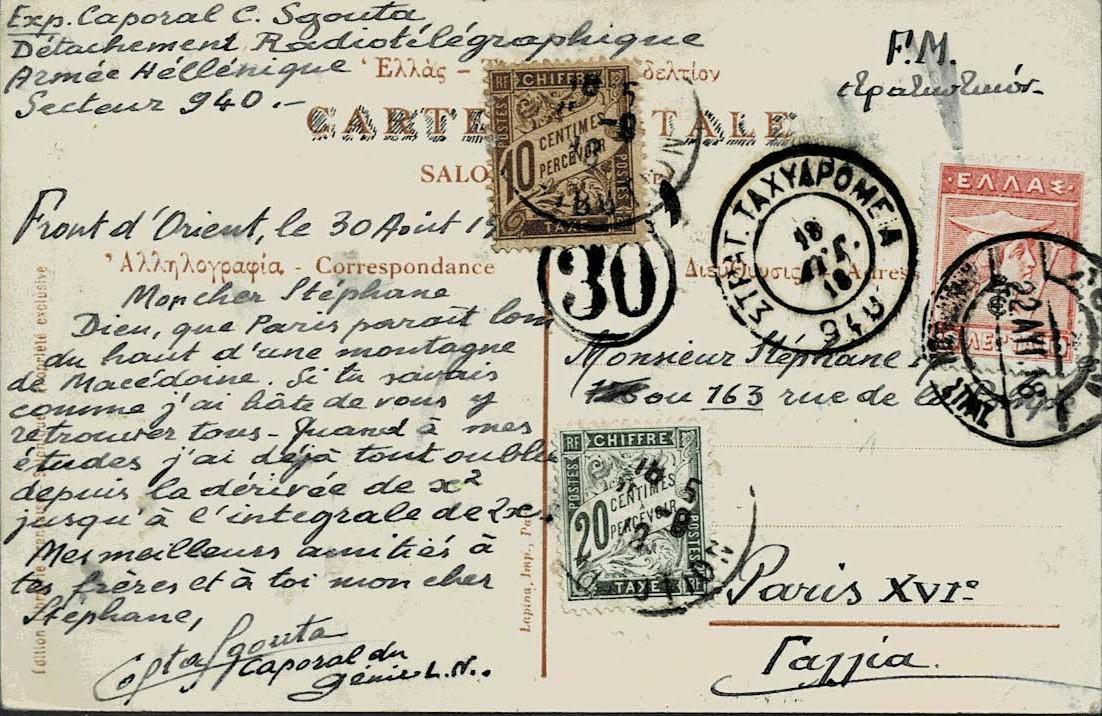 Exp. Caporal C. Sgouta,
Détachement Radiotélégraphique
Armée Héllénique
Secteur 940.-
F.M.
Ἑλλάς -
δελτίον
CARTE
TALE
SALO
Front d'Orient, le 30 Août 19
Ἀλληλογραφία - Correspondance
Διεύθυνσις
Adress
Mon cher Stéphane
Dieu, que Paris parait loin
du haut d'une montagne
de Macédoine. Si tu savais
comme j'ai hâte de vous y
retrouver tous - Quand à mes
études j'ai déjà tout oublié
depuis la dérivée de x²
jusqu'à l'integrale de 2x
Mes meilleurs amitiés à
tes frères et à toi mon cher
Stephane,
Costa Sgouta
Caporal du
génie L.N..
Monsieur Stéphane
ou 163 rue de la
Paris XVIe
Γαλλία.
RF CHIFFRE
POSTES
10 CENTIMES
À
PERCEVOIR
POSTES
TAXE
30
ΣΤΡΑΤ. ΤΑΧΥΔΡΟΜΕΙΑ
18
18
940
ΕΛΛΑΣ
22
18
RF CHIFFRE RF
POSTES
20 CENTIMES
À
PERCEVOIR
POSTES
TAXE
Lapina, Imp., Pa